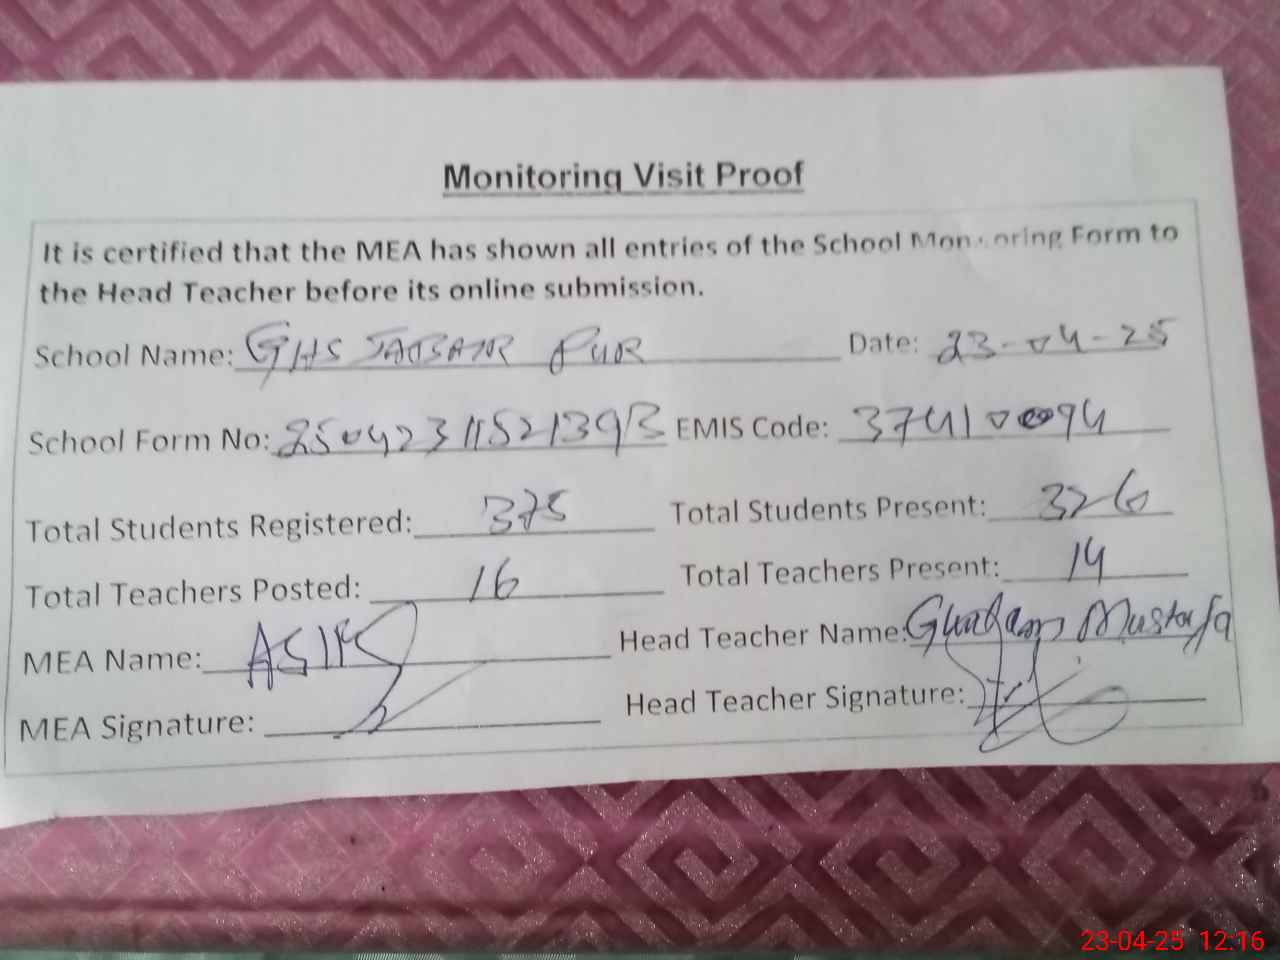 Monitoring Visit Proof
It is certified that the MEA has shown all entries of the School Monitoring Form to
the Head Teacher before its online submission.
School Name: GHS JABBAR PUR Date: 23-04-25
School Form No: EMIS Code:
Total Students Registered: 375 Total Students Present: 326
Total Teachers Posted: 16 Total Teachers Present: 14
MEA Name: ASIF Head Teacher Name: Ghulam Mustafa
MEA Signature: Head Teacher Signature:
23-04-25 12:16